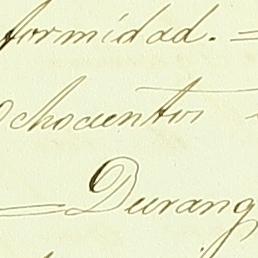 formidad. =
ochocientos
= Durang